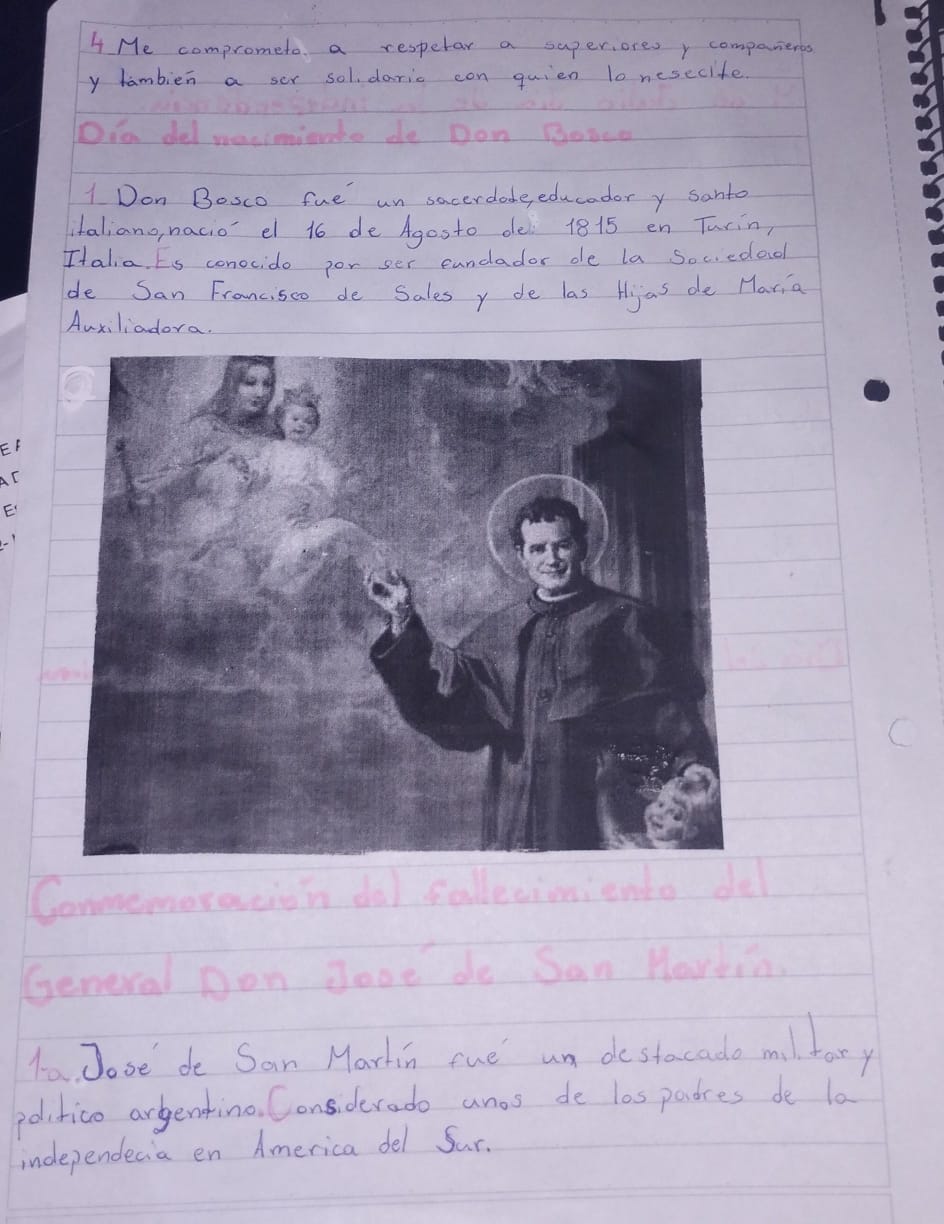 4 Me comprometo. a respetar a superiores y compañeros
y tambien a ser solidario con quien lo nesecite.
Día del nacimiento de Don Bosco
1 Don Bosco fué un sacerdote, educador y santo
italiano, nació el 16 de Agosto del 1815 en Turin,
Italia. Es conocido por ser fundador de la Sociedad
de San Francisco de Sales y de las Hijas de María
Auxiliadora.
Conmemoración del fallecimiento del
General Don José de San Martín.
1-a. José de San Martín fué un destacado militar y
político argentino. Considerado unos de los padres de la
independecia en America del Sur.
EA
E